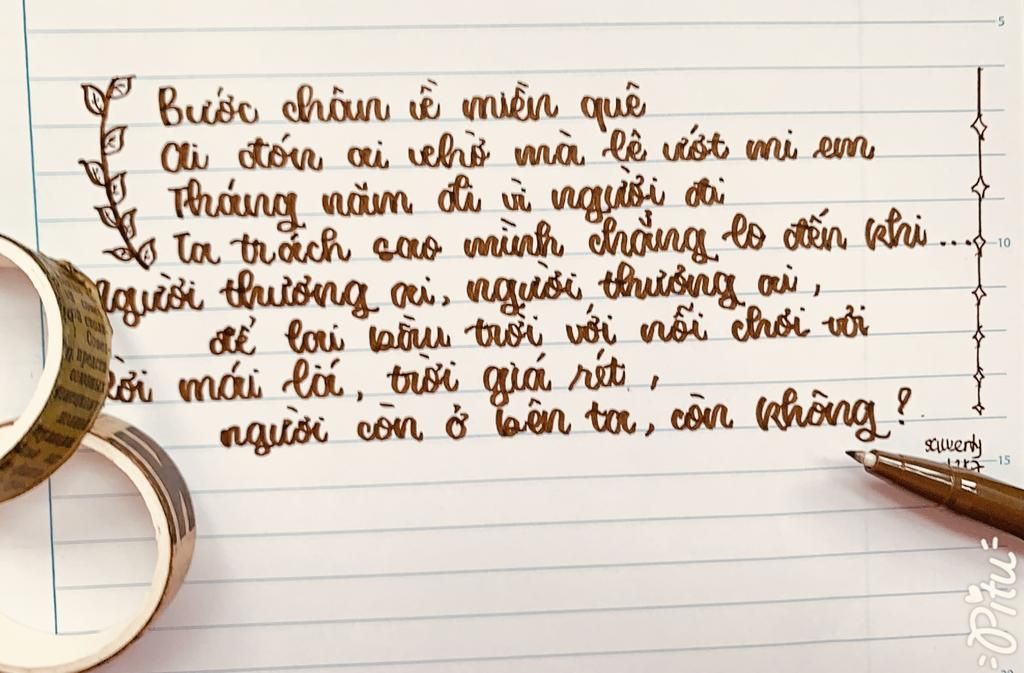 5
Bước chân về miền quê
Ai đón ai chờ mà lệ ướt mi em
Tháng năm đi vì người đi
Ta trách sao mình chẳng lo đến khi ...
10
người thương ai, người thương ai,
để lại bầu trời với nỗi chơi vơi
rồi mái lá, trời giá rét,
người còn ở bên ta, còn không?
15
Pitu